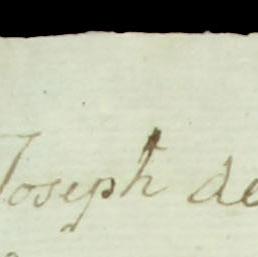 Joseph de